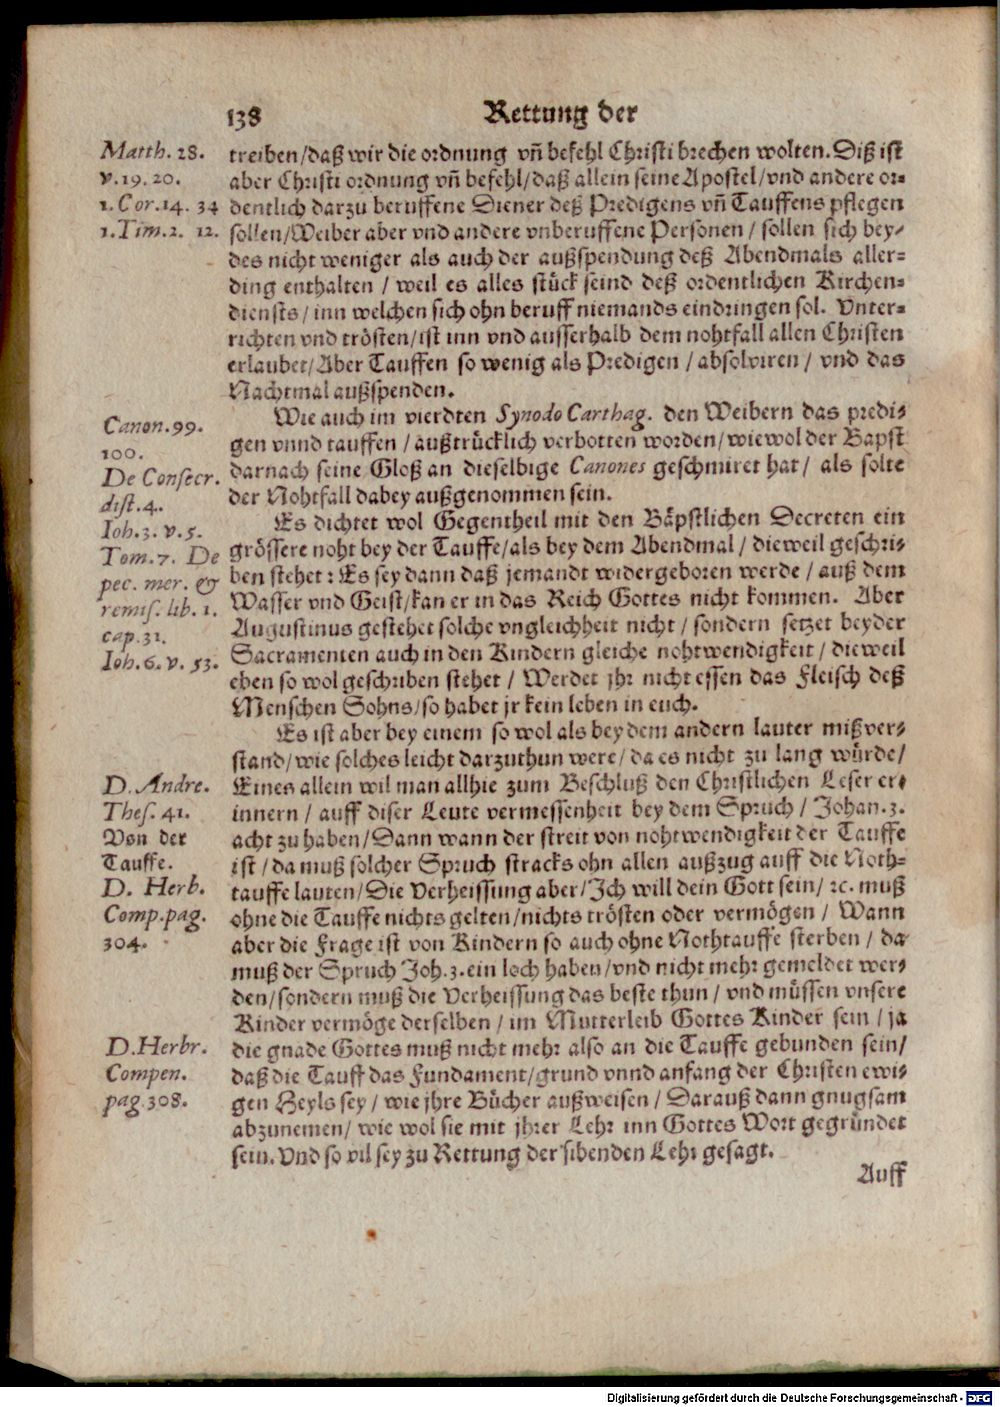 138 Rettung der
Matth. 28.
v. 19. 20.
1. Cor. 14. 34
1. Tim. 2. 12.
treiben/daß wir die ordnung vñ befehl Christi brechen wolten. Diß ist
aber Christi ordnung vñ befehl/daß allein seine Apostel/vnd andere or=
dentlich darzu beruffene Diener deß Predigens vñ Tauffens pflegen
sollen/Weiber aber vnd andere vnberuffene Personen/sollen sich bey=
des nicht weniger als auch der außspendung deß Abendmals aller=
ding enthalten/weil es alles stück seind deß ordentlichen Kirchen=
diensts/inn welchen sich ohn beruff niemands eindringen sol. Vnter=
richten vnd trösten/ist inn vnd ausserhalb dem nohtfall allen Christen
erlaubet/Aber Tauffen so wenig als Predigen/absolviren/vnd das
Nachtmal außspenden.
Canon. 99.
100.
De Consecr.
dist. 4.
Wie auch im vierdten Synodo Carthag. den Weibern das predi=
gen vnnd tauffen/außtrücklich verbotten worden/wiewol der Bapst
darnach seine Gloß an dieselbige Canones geschmiret hat/als solte
der Nohtfall dabey außgenommen sein.
Ioh. 3. v. 5.
Tom. 7. De
pec. mer. &
remis. lib. 1.
cap. 31.
Ioh. 6. v. 53.
Es dichtet wol Gegentheil mit den Bäpstlichen Decreten ein
grössere noht bey der Tauffe/als bey dem Abendmal/dieweil geschri=
ben stehet: Es sey dann daß jemandt widergeboren werde/auß dem
Wasser vnd Geist/kan er in das Reich Gottes nicht kommen. Aber
Augustinus gestehet solche vngleichheit nicht/sondern setzet beyder
Sacramenten auch in den Kindern gleiche nohtwendigkeit/dieweil
eben so wol geschriben stehet/Werdet jhr nicht essen das Fleisch deß
Menschen Sohns/so habet jr kein leben in euch.
D. Andre.
Thes. 41.
Von der
Tauffe.
D. Herb.
Comp. pag.
304.
Es ist aber bey einem so wol als bey dem andern lauter mißver=
stand/wie solches leicht darzuthun were/da es nicht zu lang würde/
Eines allein wil man allhie zum Beschluß den Christlichen Leser er=
innern/auff diser Leute vermessenheit bey dem Spruch/Johan. 3.
acht zu haben/Dann wann der streit von nohtwendigkeit der Tauffe
ist/da muß solcher Spruch stracks ohn allen außzug auff die Noth=
tauffe lauten/Die Verheissung aber/Ich will dein Gott sein/ꝛc. muß
ohne die Tauffe nichts gelten/nichts trösten oder vermögen/Wann
aber die Frage ist von Kindern so auch ohne Nothtauffe sterben/da
muß der Spruch Joh. 3. ein loch haben/vnd nicht mehr gemeldet wer=
den/sondern muß die Verheissung das beste thun/vnd müssen vnsere
Kinder vermöge derselben/im Mutterleib Gottes Kinder sein/ja
D. Herbr.
Compen.
pag. 308.
die gnade Gottes muß nicht mehr also an die Tauffe gebunden sein/
daß die Tauff das Fundament/grund vnnd anfang der Christen ewi=
gen Heyls sey/wie jhre Bücher außweisen/Darauß dann gnugsam
abzunemen/wie wol sie mit jhrer Lehr inn Gottes Wort gegründet
sein. Vnd so vil sey zu Rettung der sibenden Lehr gesagt.
Auff
Digitalisierung gefördert durch die Deutsche Forschungsgemeinschaft - DFG